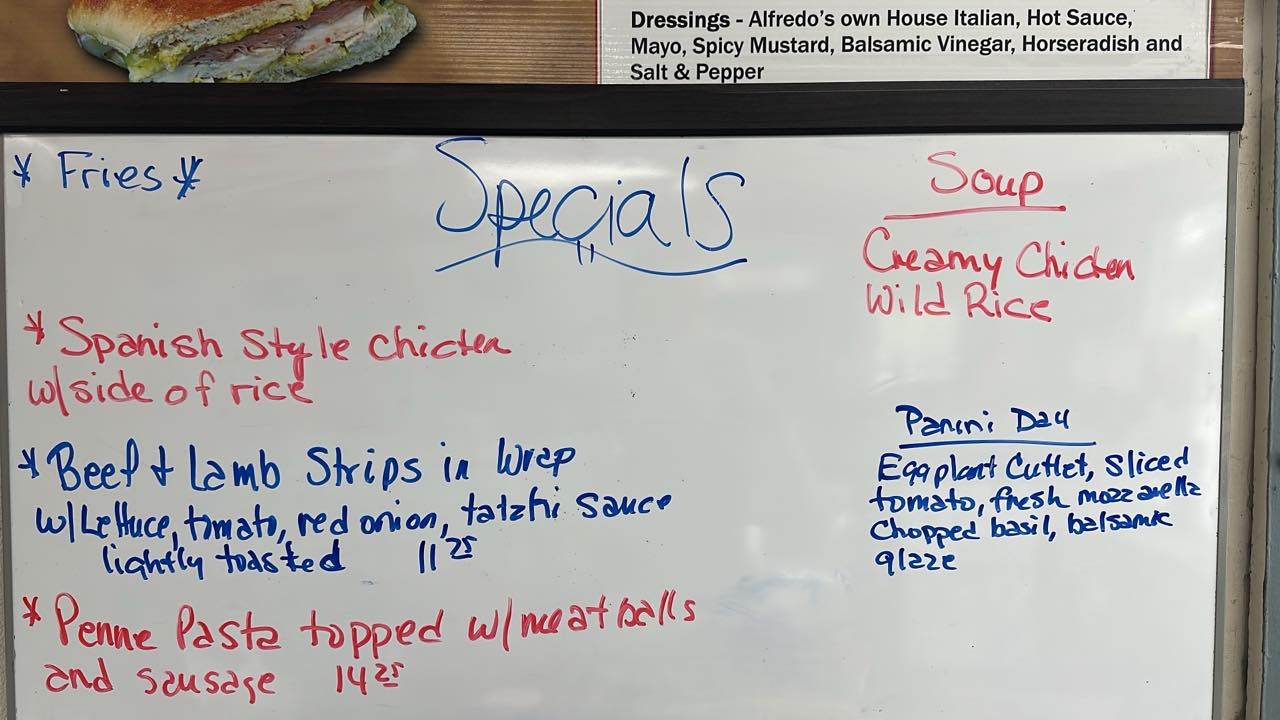 Dressings - Alfredo's own House Italian, Hot Sauce,
Mayo, Spicy Mustard, Balsamic Vinegar, Horseradish and
Salt & Pepper
* Fries *
Specials
Soup
Creamy Chicken
Wild Rice
* Spanish Style chicken
w/side of rice
* Beef + Lamb Strips in Wrap
w/Lettuce, tomato, red onion, tatzhi sauce
lightly toasted 11 25
* Penne Pasta topped w/meatballs
and sausage 14 25
Panini Day
Eggplant Cutlet, Sliced
tomato, fresh mozzarella
Chopped basil, balsamic
glaze